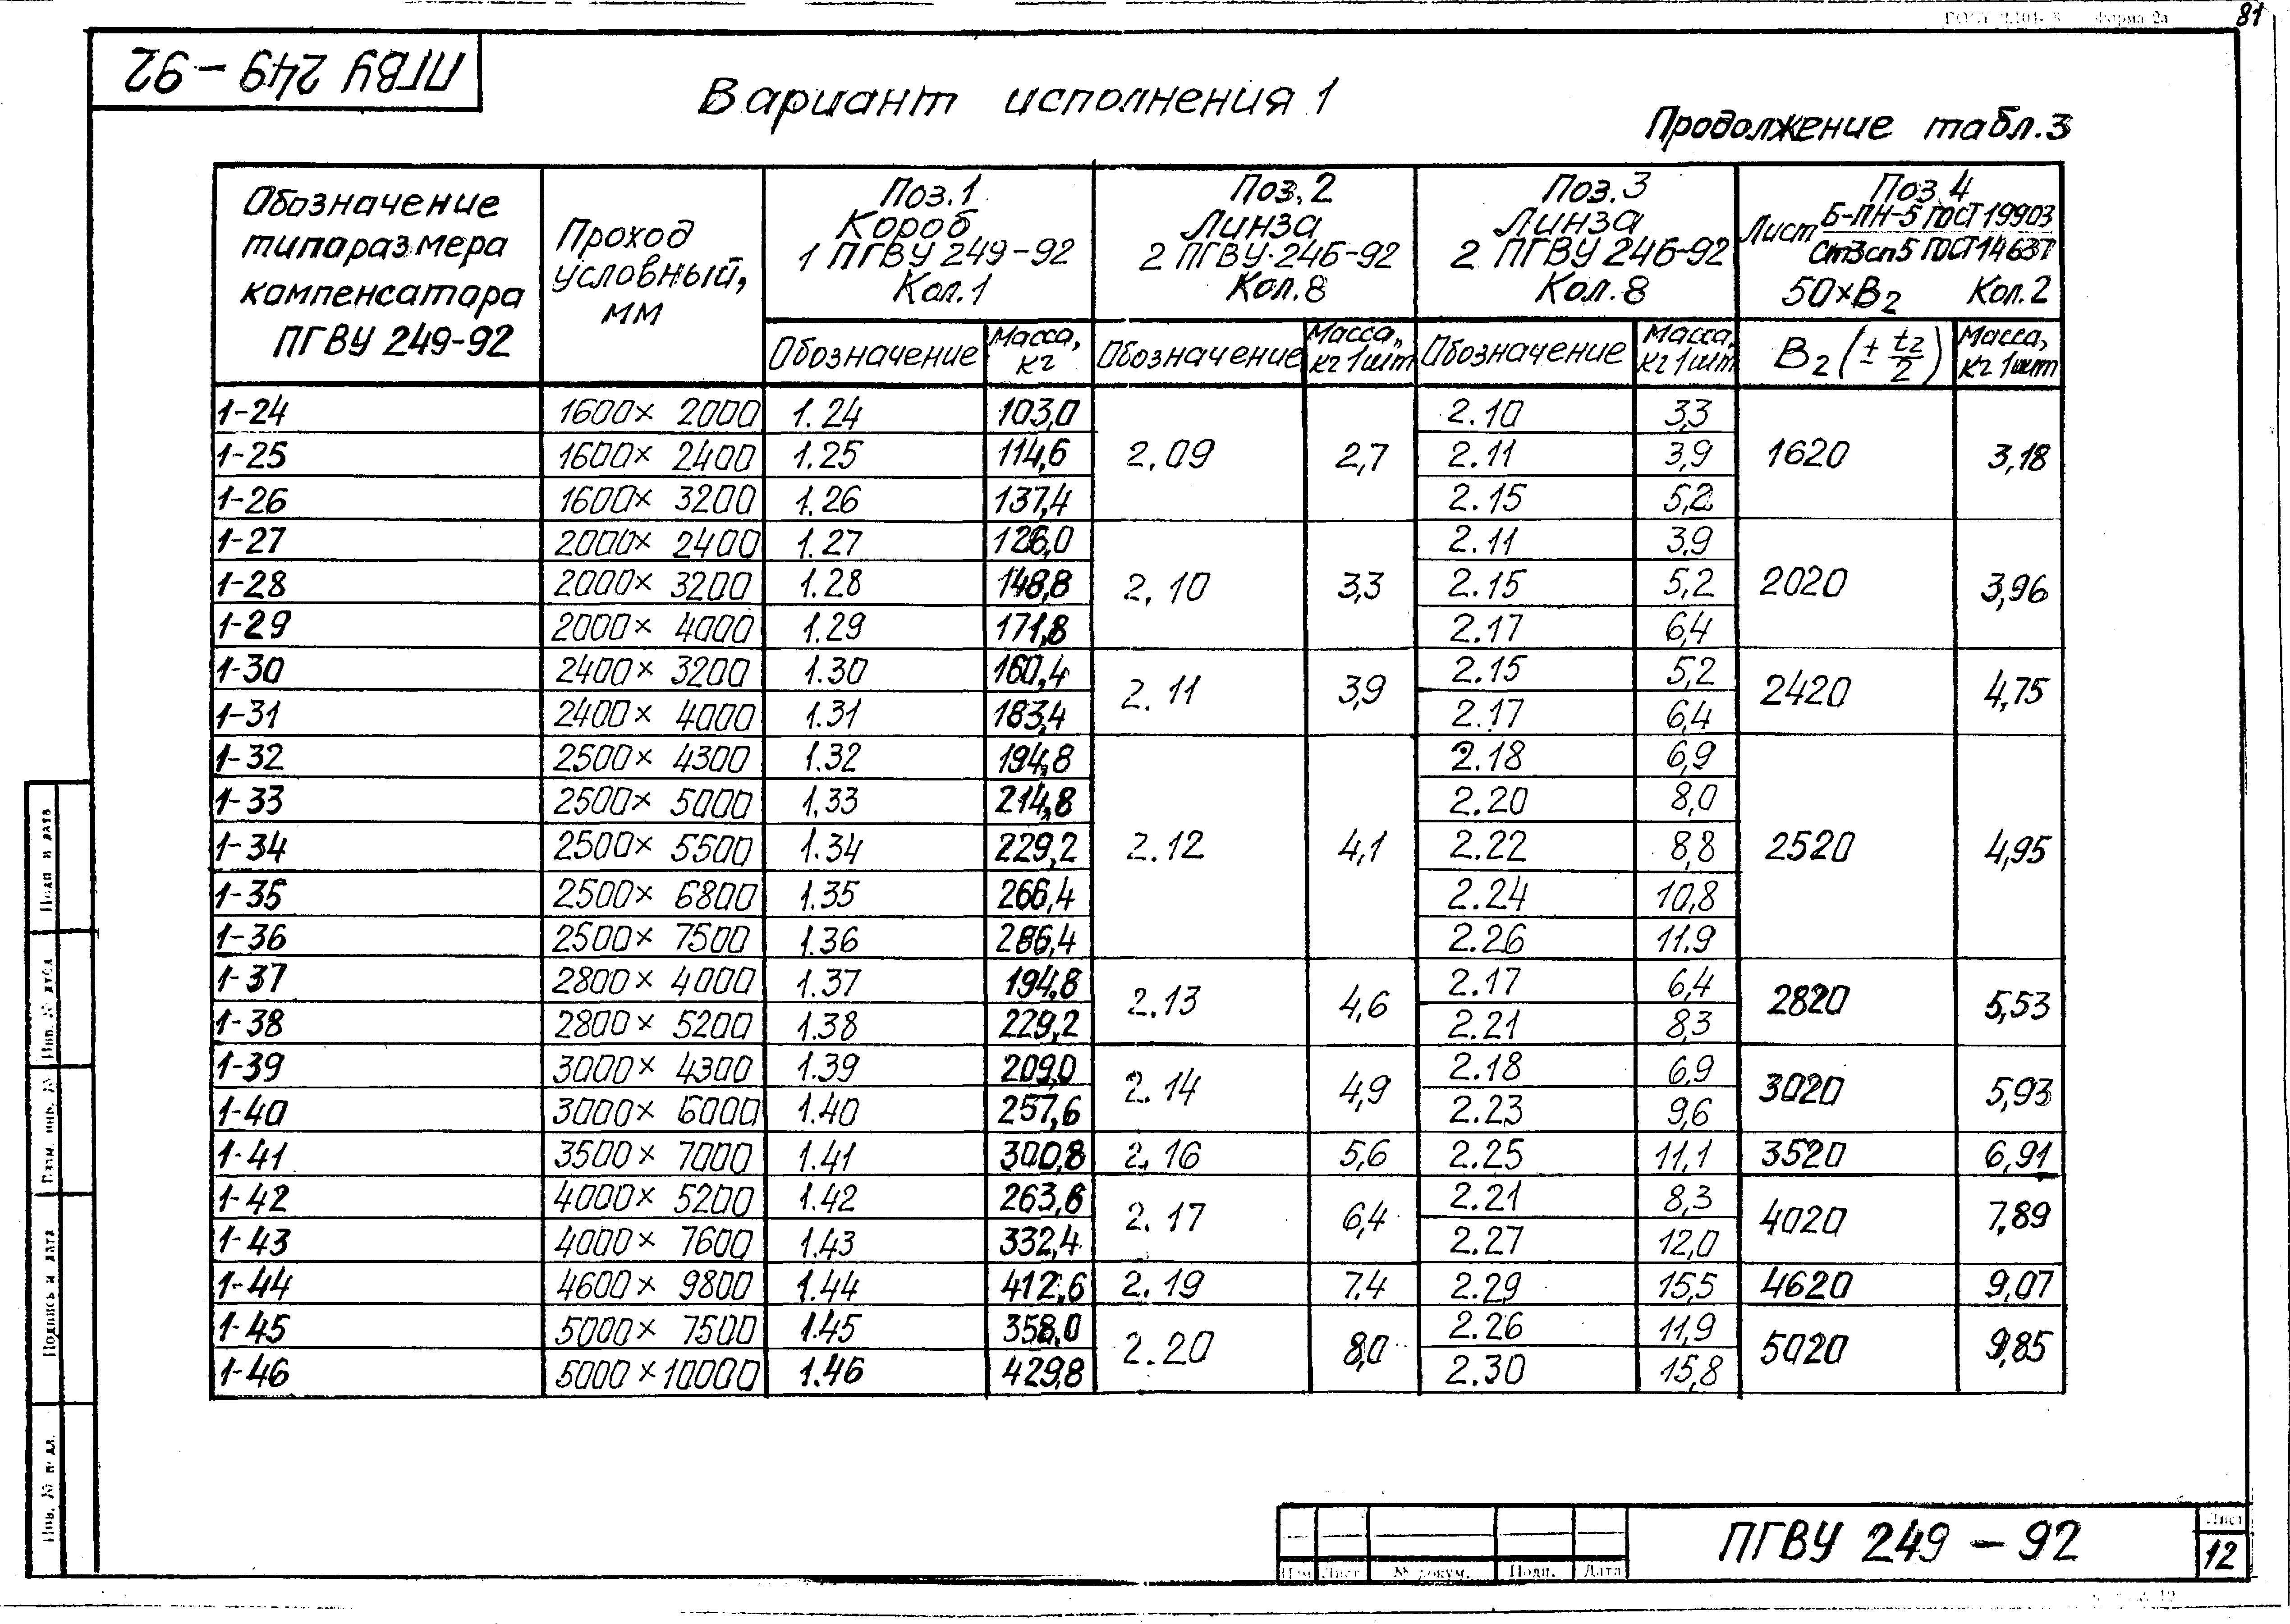 81
ПГВУ 249-92
Вариант исполнения 1
Продолжение табл.3
Обозначение типоразмера компенсатора ПГВУ 249-92
Проход условный, мм
Поз.1 Короб 1 ПГВУ 249-92 Кол.1
Поз.2 Линза 2 ПГВУ 246-92 Кол.8
Поз.3 Линза 2 ПГВУ 246-92 Кол.8
Поз.4 Лист Б-ПН-5 ГОСТ 19903 Ст3сп5 ГОСТ 14637 50×В2 Кол.2
Обозначение Масса, кг Обозначение Масса, кг 1шт Обозначение Масса, кг 1шт В2 (± t2/2) Масса, кг 1шт
1-24 1600× 2000 1.24 103,0 2.10 3,3
1-25 1600× 2400 1.25 114,6 2.09 2,7 2.11 3,9 1620 3,18
1-26 1600× 3200 1.26 137,4 2.15 5,2
1-27 2000× 2400 1.27 126,0 2.11 3,9
1-28 2000× 3200 1.28 148,8 2.10 3,3 2.15 5,2 2020 3,96
1-29 2000× 4000 1.29 171,8 2.17 6,4
1-30 2400× 3200 1.30 160,4 2.11 3,9 2.15 5,2 2420 4,75
1-31 2400× 4000 1.31 183,4 2.17 6,4
1-32 2500× 4300 1.32 194,8 2.18 6,9
1-33 2500× 5000 1.33 214,8 2.20 8,0
1-34 2500× 5500 1.34 229,2 2.12 4,1 2.22 8,8 2520 4,95
1-35 2500× 6800 1.35 266,4 2.24 10,8
1-36 2500× 7500 1.36 286,4 2.26 11.9
1-37 2800× 4000 1.37 194,8 2.13 4,6 2.17 6,4 2820 5,53
1-38 2800× 5200 1.38 229,2 2.21 8,3
1-39 3000× 4300 1.39 209,0 2.14 4,9 2.18 6,9 3020 5,93
1-40 3000× 6000 1.40 257,6 2.23 9,6
1-41 3500× 7000 1.41 300,8 2.16 5,6 2.25 11,1 3520 6,91
1-42 4000× 5200 1.42 263,6 2.17 6,4 2.21 8,3 4020 7,89
1-43 4000× 7600 1.43 332,4 2.27 12,0
1-44 4600× 9800 1.44 412,6 2.19 7.4 2.29 15,5 4620 9,07
1-45 5000× 7500 1.45 358,0 2.20 8,0 2.26 11,9 5020 9,85
1-46 5000×10000 1.46 429,8 2.30 15,8
Подп и дата
Инв. № дубл
Взам. инв. №
Подпись и дата
Инв. №
Изм Лист № докум. Подп. Дата
ПГВУ 249-92
Лист
12